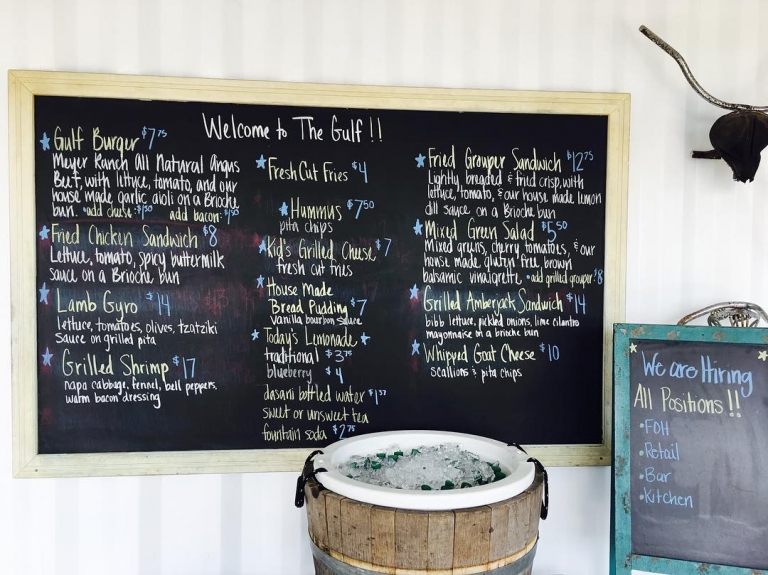 Welcome to The Gulf!!
Gulf Burger $7.75
Meyer Ranch All Natural Angus
Beef, with lettuce, tomato, and our
house made garlic aioli on a Brioche
bun. *add cheese: $1.50 add bacon: $1.50
Fried Chicken Sandwich $8
Lettuce, tomato, spicy buttermilk
sauce on a Brioche bun
Lamb Gyro $14
lettuce, tomatoes, olives, tzatziki
sauce on grilled pita
Grilled Shrimp $17
napa cabbage, fennel, bell peppers,
warm bacon dressing
Fresh Cut Fries $4
Hummus $7.50
pita chips
Kid's Grilled Cheese $7
fresh cut fries
House Made
Bread Pudding $7
vanilla bourbon sauce
Today's Lemonade
traditional $3.75
blueberry $4
dasani bottled water
sweet or unsweet tea
fountain soda $2.75
Fried Grouper Sandwich $12.75
Lightly breaded & fried crisp, with
lettuce, tomato, & our house made lemon
dill sauce on a Brioche bun
Mixed Green Salad $5.50
Mixed greens, cherry tomatoes, & our
house made, gluten free brown
balsamic vinaigrette *add grilled grouper: $8
Grilled Amberjack Sandwich $14
bibb lettuce, pickled onions, lime cilantro
mayonnaise on a brioche bun
Whipped Goat Cheese $10
scallions & pita chips
We are Hiring
All Positions!!
•FOH
•Retail
•Bar
•Kitchen